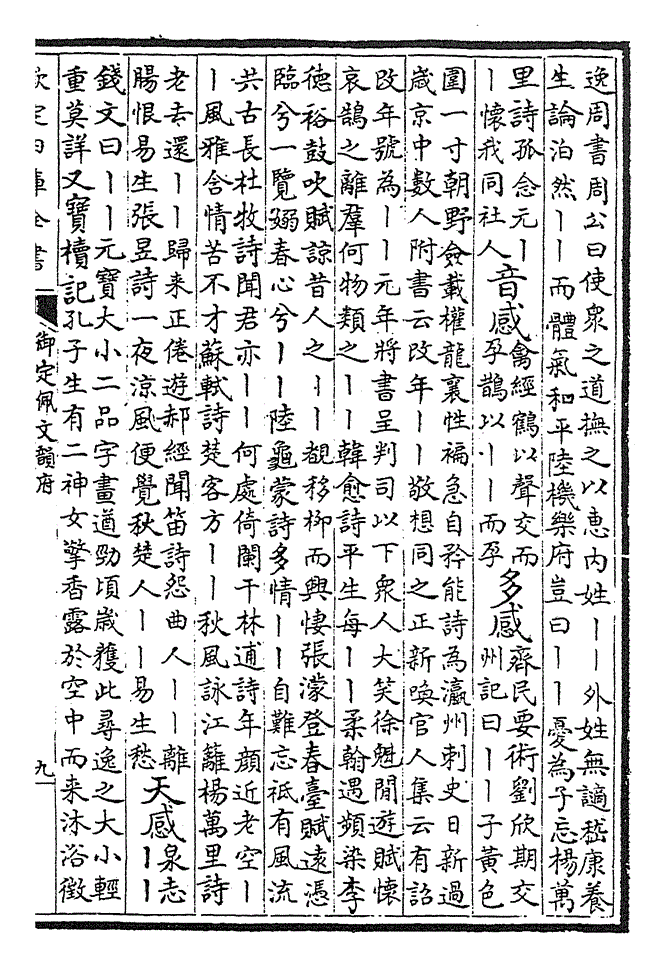 逸周書周公曰使眾之道撫之以惠内姓丨丨外姓無謫嵇康養
生論泊然丨丨而體氣和平陸機樂府豈曰丨丨憂為子忘楊萬
里詩孤念元丨
丨懷我同社人
音感
禽經鶴以聲交而
孕鵲以丨丨而孕
多感
齊民要術劉欣期交
州記曰丨丨子黃色
圍一寸朝野僉載權龍襄性褊急自矜能詩為瀛州刺史日新過
歲京中數人附書云改年丨丨敬想同之正新喚官人集云有詔
改年號為丨丨元年將書呈判司以下眾人大笑徐魁閒遊賦懷
哀鵠之離羣何物類之丨丨韓愈詩平生每丨丨柔翰遇頻染李
德裕鼓吹賦諒昔人之丨丨覩移栁而興悽張濛登春臺賦遠憑
臨兮一覽嫋春心兮丨丨陸龜蒙詩多情丨丨自難忘祗有風流
共古長杜牧詩聞君亦丨丨何處倚闌干林逋詩年顔近老空丨
丨風雅含情苦不才蘇軾詩楚客方丨丨秋風詠江蘺楊萬里詩
老去還丨丨歸来正倦遊郝經聞笛詩怨曲人丨丨離
腸恨易生張昱詩一夜涼風便覺秋楚人丨丨易生愁
天感
泉志
丨丨
錢文曰丨丨元寶大小二品字畫遒勁頃歲獲此尋逸之大小輕
重莫詳又寶櫝記孔子生有二神女擎香露於空中而来沐浴徵
欽定四庫全書
御定佩文韻府
九